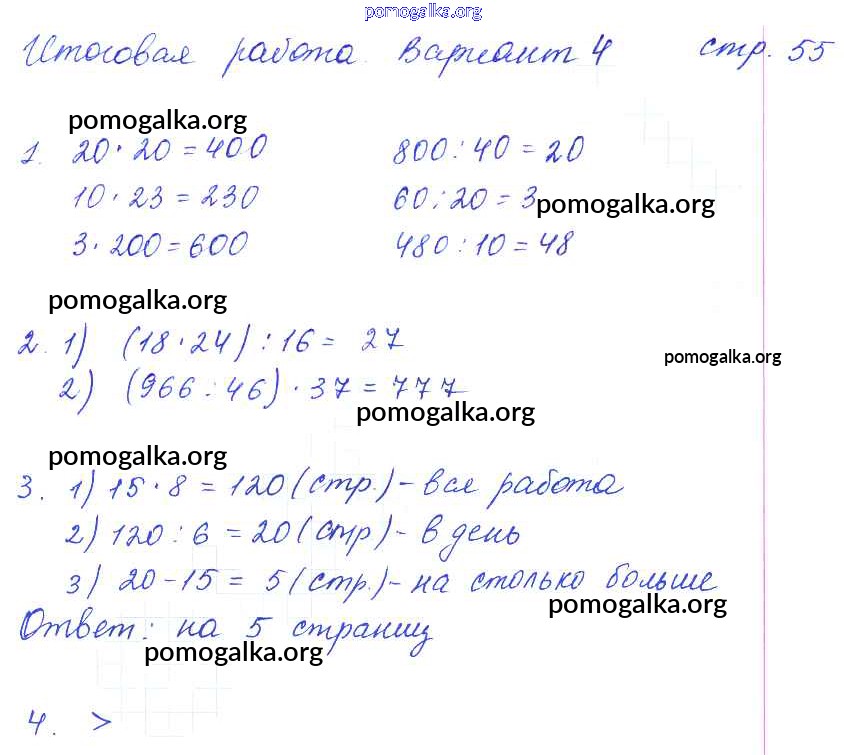 pomogalka.org
Итоговая работа. Вариант 4 стр. 55
pomogalka.org
1. 20 · 20 = 400 800 : 40 = 20
10 · 23 = 230 60 : 20 = 3 pomogalka.org
3 · 200 = 600 480 : 10 = 48
pomogalka.org
2. 1) (18 · 24) : 16 = 27
pomogalka.org
2) (966 : 46) · 37 = 777
pomogalka.org
pomogalka.org
3. 1) 15 · 8 = 120 (стр.) - вся работа
2) 120 : 6 = 20 (стр) - в день
3) 20 - 15 = 5 (стр.) - на столько больше
pomogalka.org
Ответ: на 5 страниц
pomogalka.org
4. >